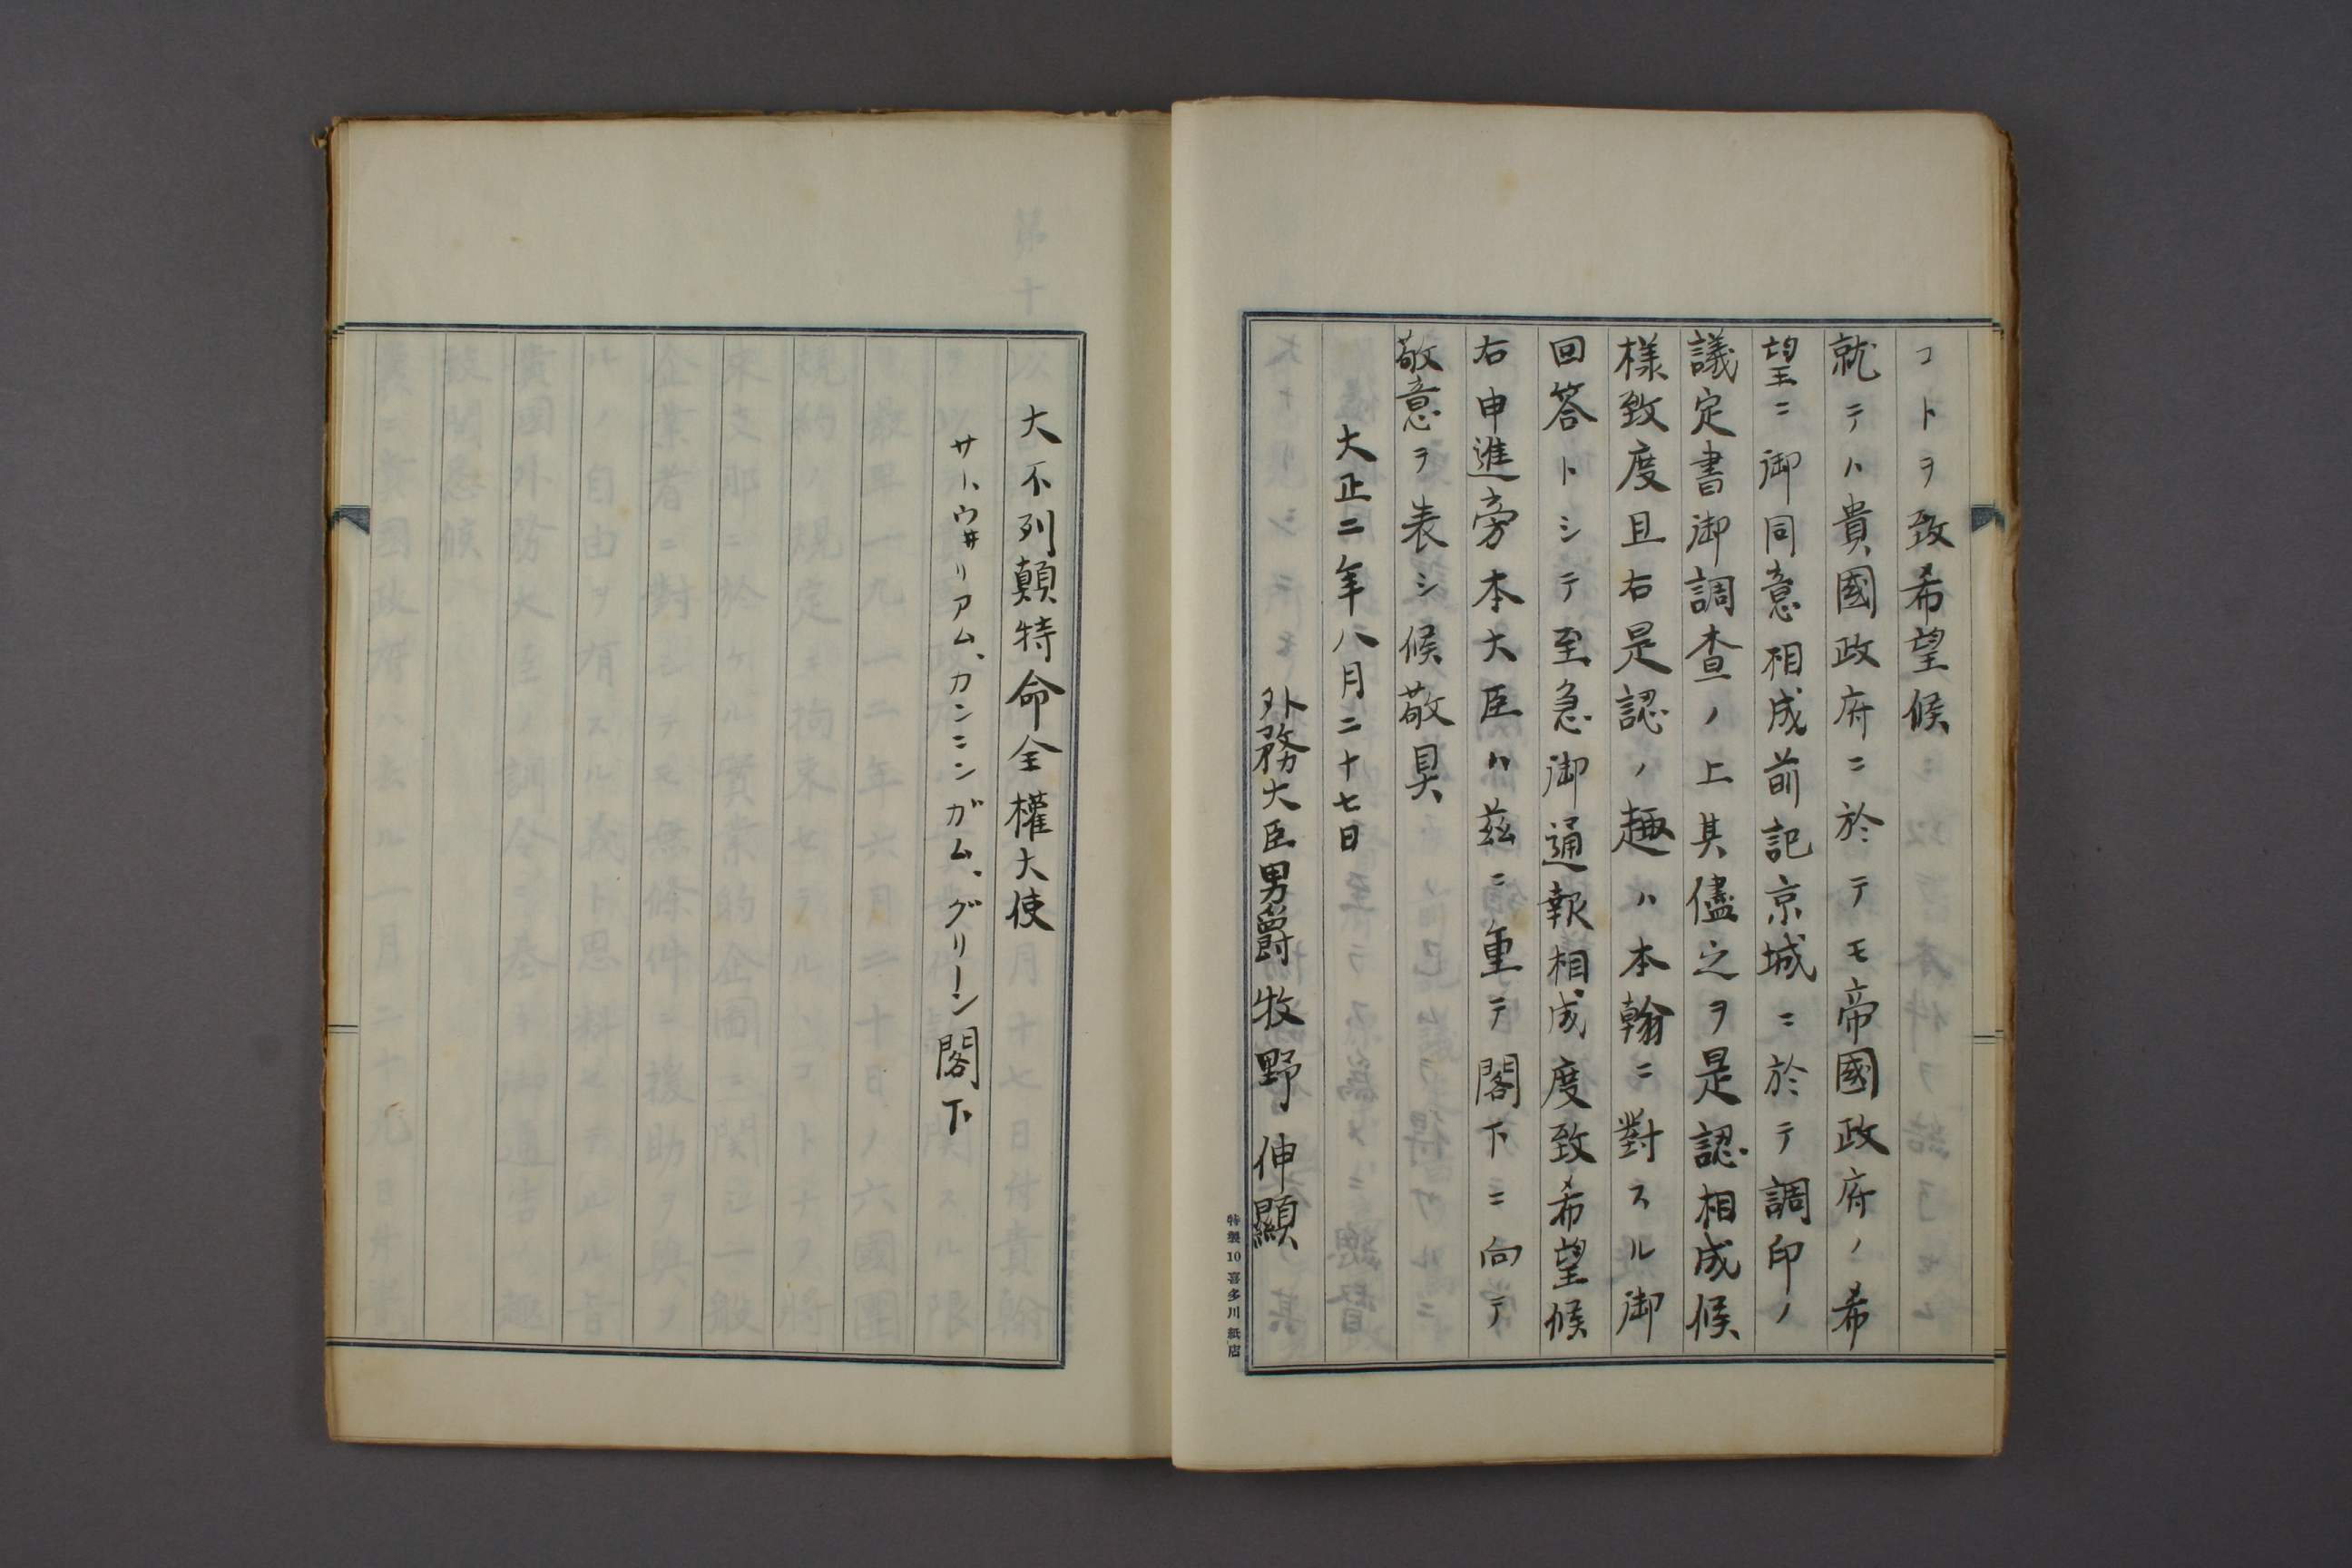 コトヲ致希望候
就テハ貴國政府ニ於テモ帝國政府ノ希
望ニ御同意相成前記京城ニ於テ調印ノ
議定書御調査ノ上其儘之ヲ是認相成候
樣致度且右是認ノ趣ハ本翰ニ對スル御
回答トシテ至急御通報相成度致希望候
右申進旁本大臣ハ茲ニ重テ閣下ニ向テ
敬意ヲ表シ候敬具
大正二年八月二十七日
外務大臣男爵牧野伸顯
特製10喜多川紙店
大不列顛特命全權大使
サー、ウ井リアム、カンニンガム、グリーン閣下